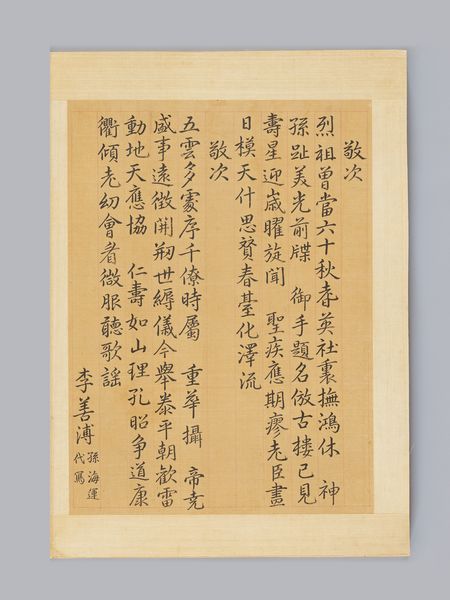 敬次
烈祖曾當六十秋耆英社裏撫鴻休 神
孫趾美光前牒 御手題名倣古樓已見
壽星迎歲曜旋聞 聖疾應期瘳老臣畫
日模天什思贊春臺化澤流
敬次
五雲多處序千僚時屬 重華攝 帝堯
盛事遠徵開刱世縟儀今擧泰平朝歡雷
動地天應協 仁壽如山理孔昭爭道康
衢傾老幼會看微服聽歌謠
李善溥
孫海運
代寫